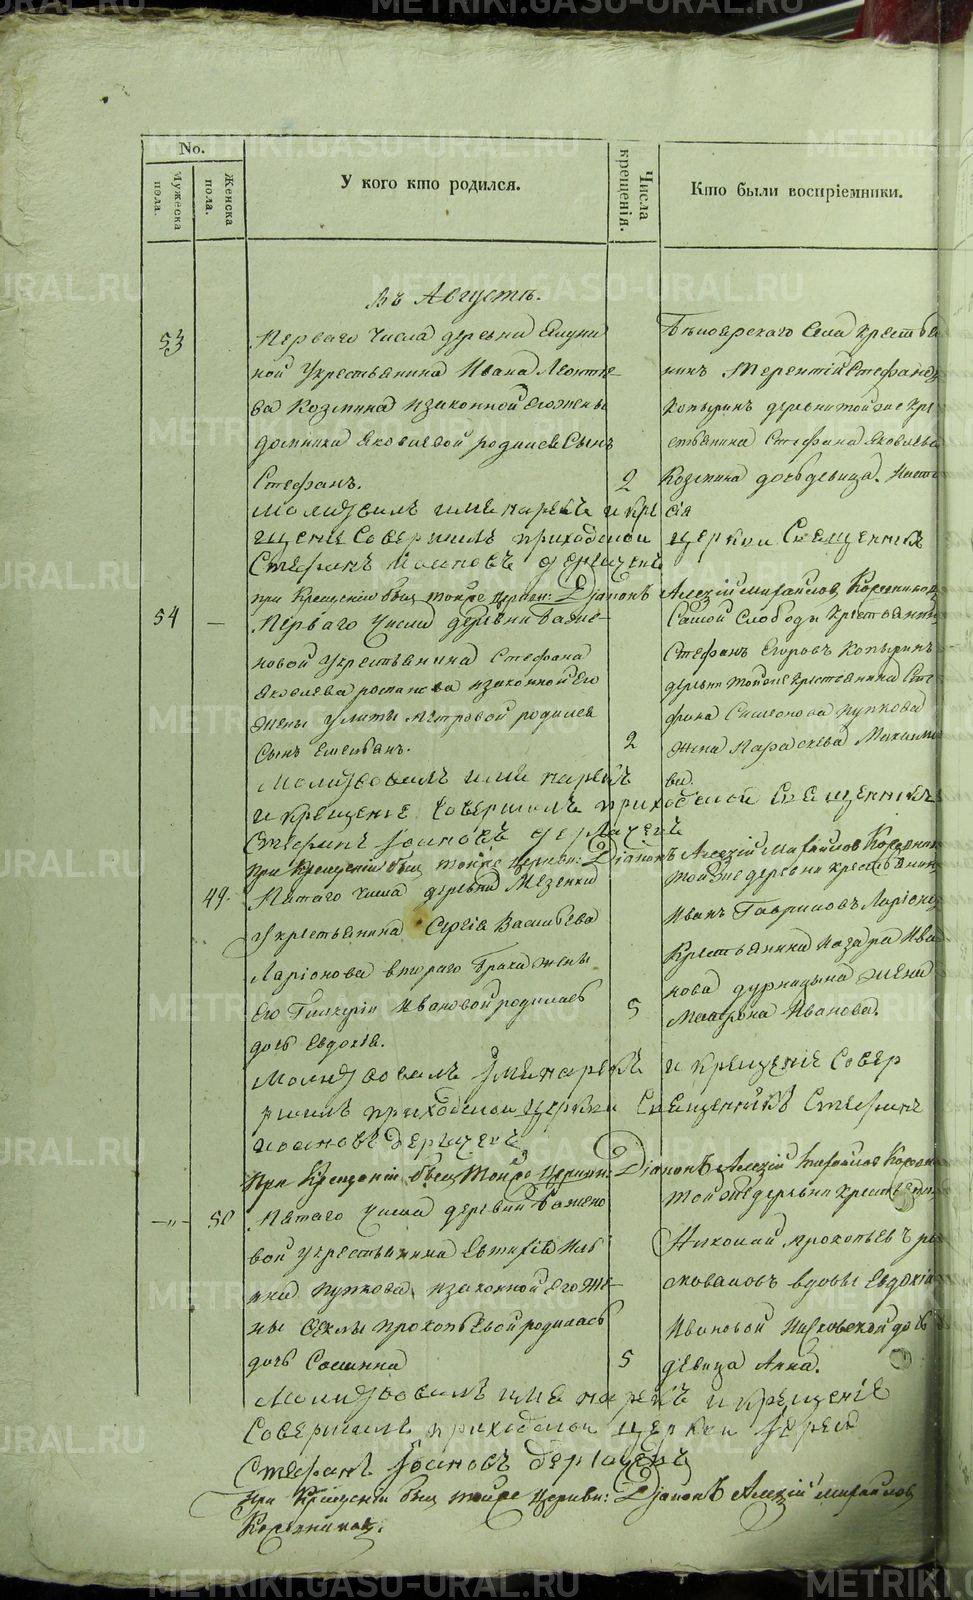 No.
Мужеска пола.
Женска пола.
У кого кто родился.
Числа крещенія.
Кто были воспріемники.
Въ Августѣ.
53
Перваго числа деревни
ной укрестьянина Ивана Леонтье
ва Козмина изаконной егожены
домники Яковлевой родился Сынъ
Стефанъ.
2
Бѣлоярскаго Села крестья
нинъ Терентій Стефановъ
Копыринъ деревни тойже кре
стьянина Стефана Яковлева
Козмина дочь девица.
Молитвилъ имя нарекъ и кре
щение Совершилъ приходской церкви Священникъ
Стефанъ Иоанновъ
при Крещеніи былъ тойже церкви: Діаконъ Алексій Михайлов
54
Перваго числа деревни Баже
новой укрестьянина Стефана
Яковлева изаконной Его
жены Улиты Петровой родился
Сынъ
2
Самой Слободы крестьянинъ
Стефанъ Егоровъ Копыринъ
деревни тойже крестьянина Сте
фана Симеонова Пупкова
жена Параскева
ва.
Молитвовалъ имя нарекъ
и крещение совершилъ приходской Священникъ
Стефанъ Иоанновъ
при Крещеніи былъ тойже церкви: Діаконъ Алексій Михайлов
49.
Пятаго числа деревни Мезенки
укрестьянина Сергія Васильева
Ларіонова втораго брака жены
Его Гликеріи Ивановой родилась
дочь Евдокія.
5
тойже деревни крестьянинъ
Иванъ Гавриловъ Ларіоновъ
Крестьянина Назара Ива
нова жена
Матрона Иванова.
Молитвовалъ имя нарекъ и крещеніе Совер
шилъ приходской церкви Священникъ Стефанъ
Иоанновъ
При Крещеніи былъ тойже церкви: Діаконъ Алексій Михайлов
50
Пятаго числа деревни Бажено
вой укрестьянина Евтифія Иль
ина Пупкова, изаконной Его же
ны Феклы прокопьевой родилась
дочь
5
тойже деревни крестьянинъ
Николай прокопьевъ
вдовы Евдокіи
Ивановой дочь
девица Анна.
Молитвовалъ имя нарекъ и крещеніе
Совершилъ приходской церкви Іерей
Стефанъ Іоанновъ
при Крещеніи былъ тойже Церкви: Діаконъ Алексій Михайлов
METRIKI.GASO-URAL.RU